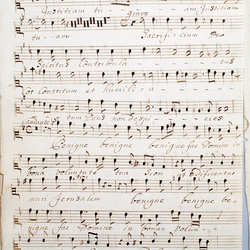 Justitiam tu - - am, Justitiam
tu - am grave Sacrificium Deo
Spiritus contribula - - - eus
Cor contritum et humilia - - -
Andante tum Deus non despi - cies
Benigne benigne benigne fac Domine in
bona voluntate tua Sion ut aedificentur
muri Jerusalem benigne benigne be -
nigne fac Domine in bona volun -